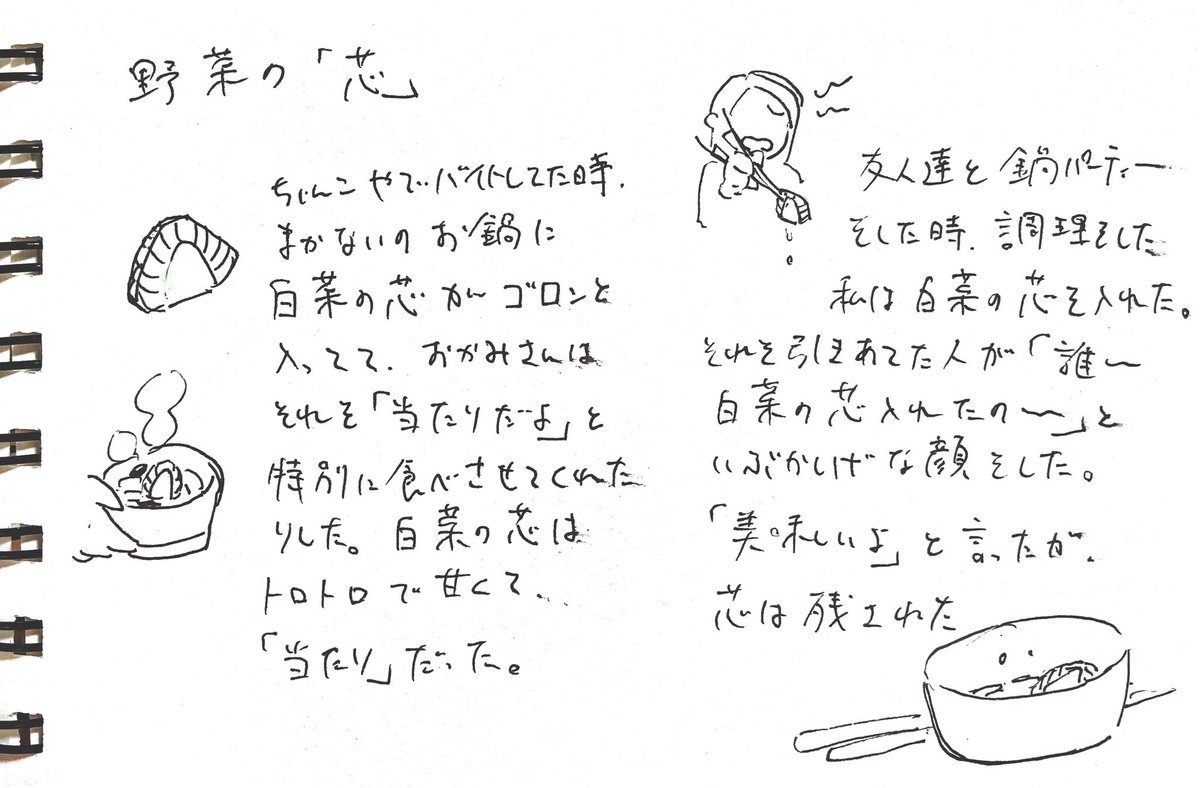 野菜の「芯」
ちゃんこやでバイトしてた時、
まかないのお鍋に
白菜の芯がゴロンと
入ってて、おかみさんは
それを「当たりだよ」と
特別に食べさせてくれた
りした。白菜の芯は
トロトロで甘くて、、
「当たり」だった。
友人達と鍋パーティー
をした時、調理をした
私は白菜の芯を入れた。
それを引きあてた人が「誰〜
白菜の芯入れたの〜」と
いぶかしげな顔をした。
「美味しいよ」と言ったが、
芯は残された